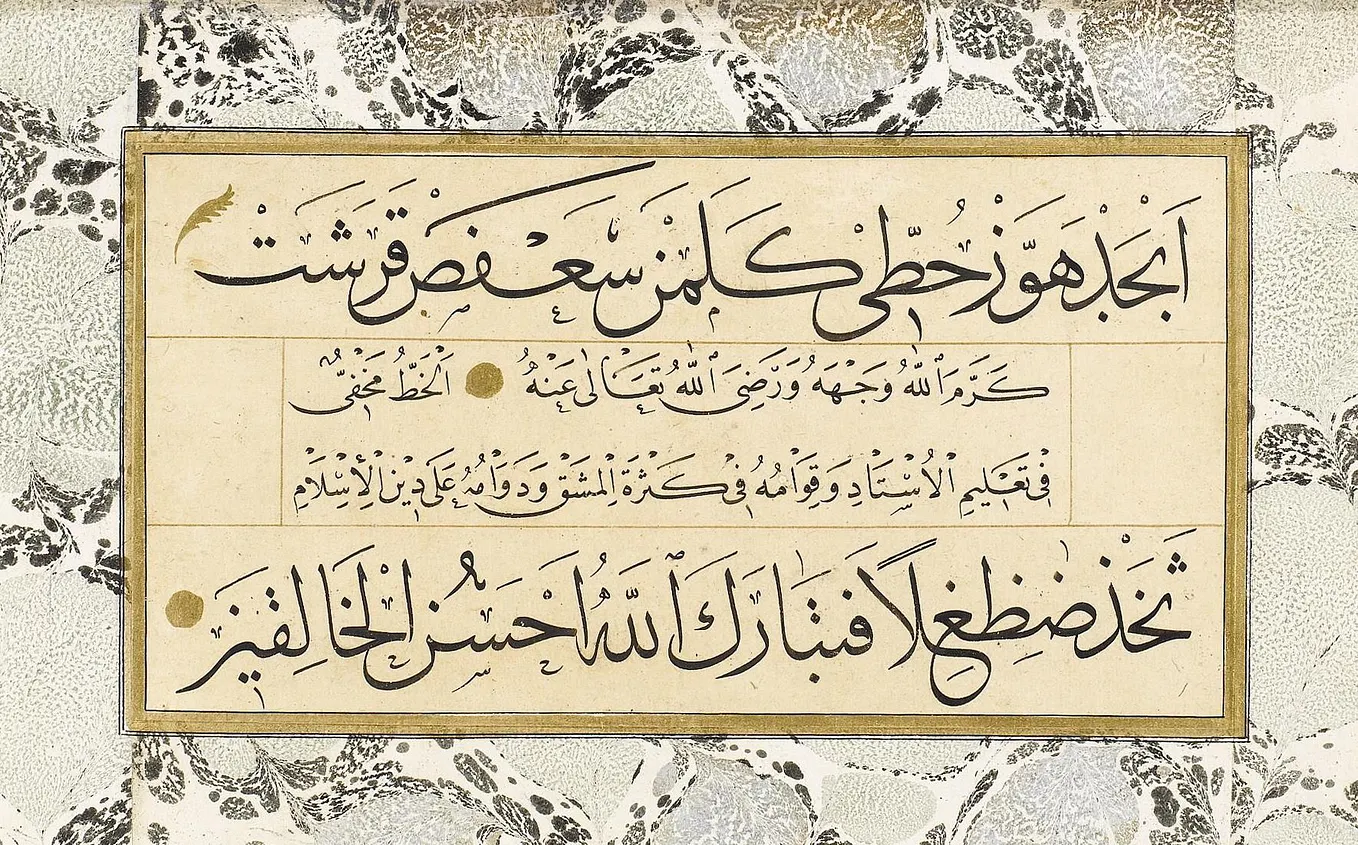 اَبْجَدْ هَوَّزْ حُطِّىْ كَلَمَنْ سَعَفَصْ قَرَشَتْ
كَرَّمَ اللّٰهُ وَجْهَهُ وَرَضِىَ اللّٰهُ تَعَالٰى عَنْهُ اَلْخَطُّ مَخْفِىٌّ
فِى تَعْلِيمِ الْاُسْتَادِ وَقِوَامُهُ فِى كَثْرَةِ الْمَشْقِ وَدَوَامُهُ عَلَى دِينِ الْاِسْلَامِ
ثَخَذْ ضَظِغٍ لًا فَتَبَارَكَ اللّٰهُ اَحْسَنُ الْخَالِقِينَ